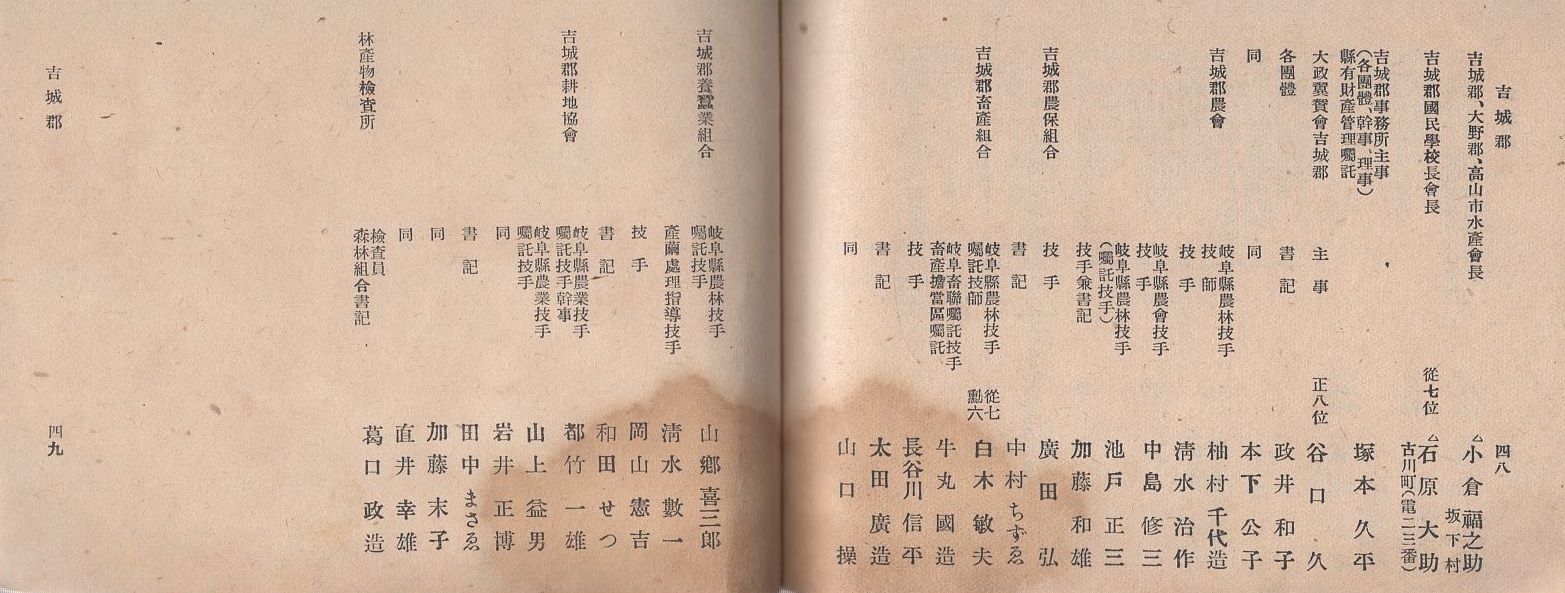 吉城郡
四八
吉城郡、大野郡、高山市水產會長
△小倉福之助
坂下村
吉城郡國民學校長會長
從七位
△石原大助
古川町(電二三番)
吉城郡事務所主事
(各團體、幹事、理事)
縣有財產管理囑託
塚本久平
大政翼賛會吉城郡
主事
正八位
谷口久
各團體
書記
政井和子
同
同
本下公子
吉城郡農會
岐阜縣農林技手
技師
柚村千代造
技手
淸水治作
岐阜縣農會技手
技手
中島修三
岐阜縣農林技手
(囑託技手)
池戸正三
技手兼書記
加藤和雄
吉城郡農保組合
技手
廣田弘
書記
中村ちずゑ
吉城郡畜產組合
岐阜縣農林技手
囑託技師
從七
勳六
白木敏夫
岐阜畜聯囑託技手
畜產擔當區囑託
牛丸國造
技手
長谷川信平
書記
太田廣造
同
山口操
吉城郡養蠶業組合
岐阜縣農林技手
囑託技手
山鄕喜三郎
產繭處理指導技手
淸水數一
技手
岡山憲吉
書記
和田せつ
吉城郡耕地協會
岐阜縣農業技手
囑託技手幹事
都竹一雄
岐阜縣農業技手
囑託技手
山上益男
同
岩井正博
書記
田中まさゑ
同
加藤末子
同
直井幸雄
林產物檢查所
檢查員
森林組合書記
葛口政造
吉城郡
四九